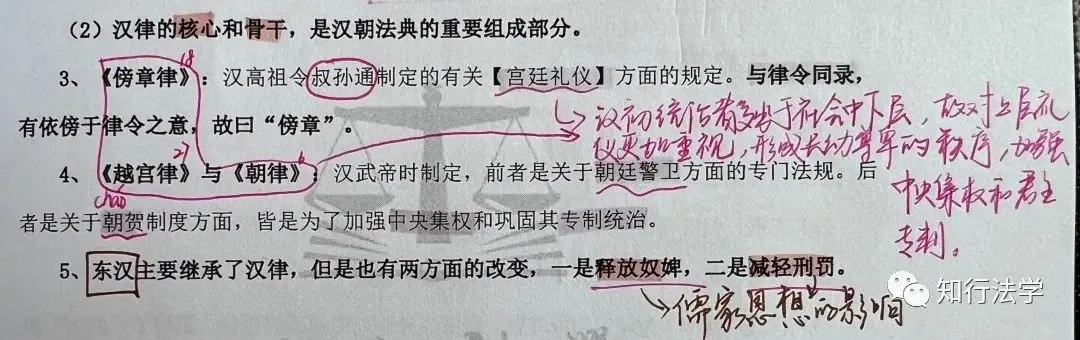 （2）汉律的核心和骨干，是汉朝法典的重要组成部分。
3、《傍章律》：汉高祖令叔孙通制定的有关【宫廷礼仪】方面的规定。与律令同录，
18
有依傍于律令之意，故曰“傍章”。
汉初统治者多出于社会中下层，故对上层礼
仪更加重视，形成长幼尊卑的秩序，加强
中央集权和君主
专制。
27
6
4、《越宫律》与《朝律》：汉武帝时制定，前者是关于朝廷警卫方面的专门法规。后
chao
者是关于朝贺制度方面，皆是为了加强中央集权和巩固其专制统治。
5、东汉主要继承了汉律，但是也有两方面的改变，一是释放奴婢，二是减轻刑罚。
儒家思想的影响
知行法学